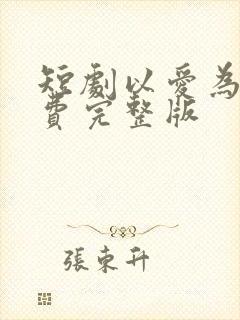 短劇以愛為
費完整版
張東升